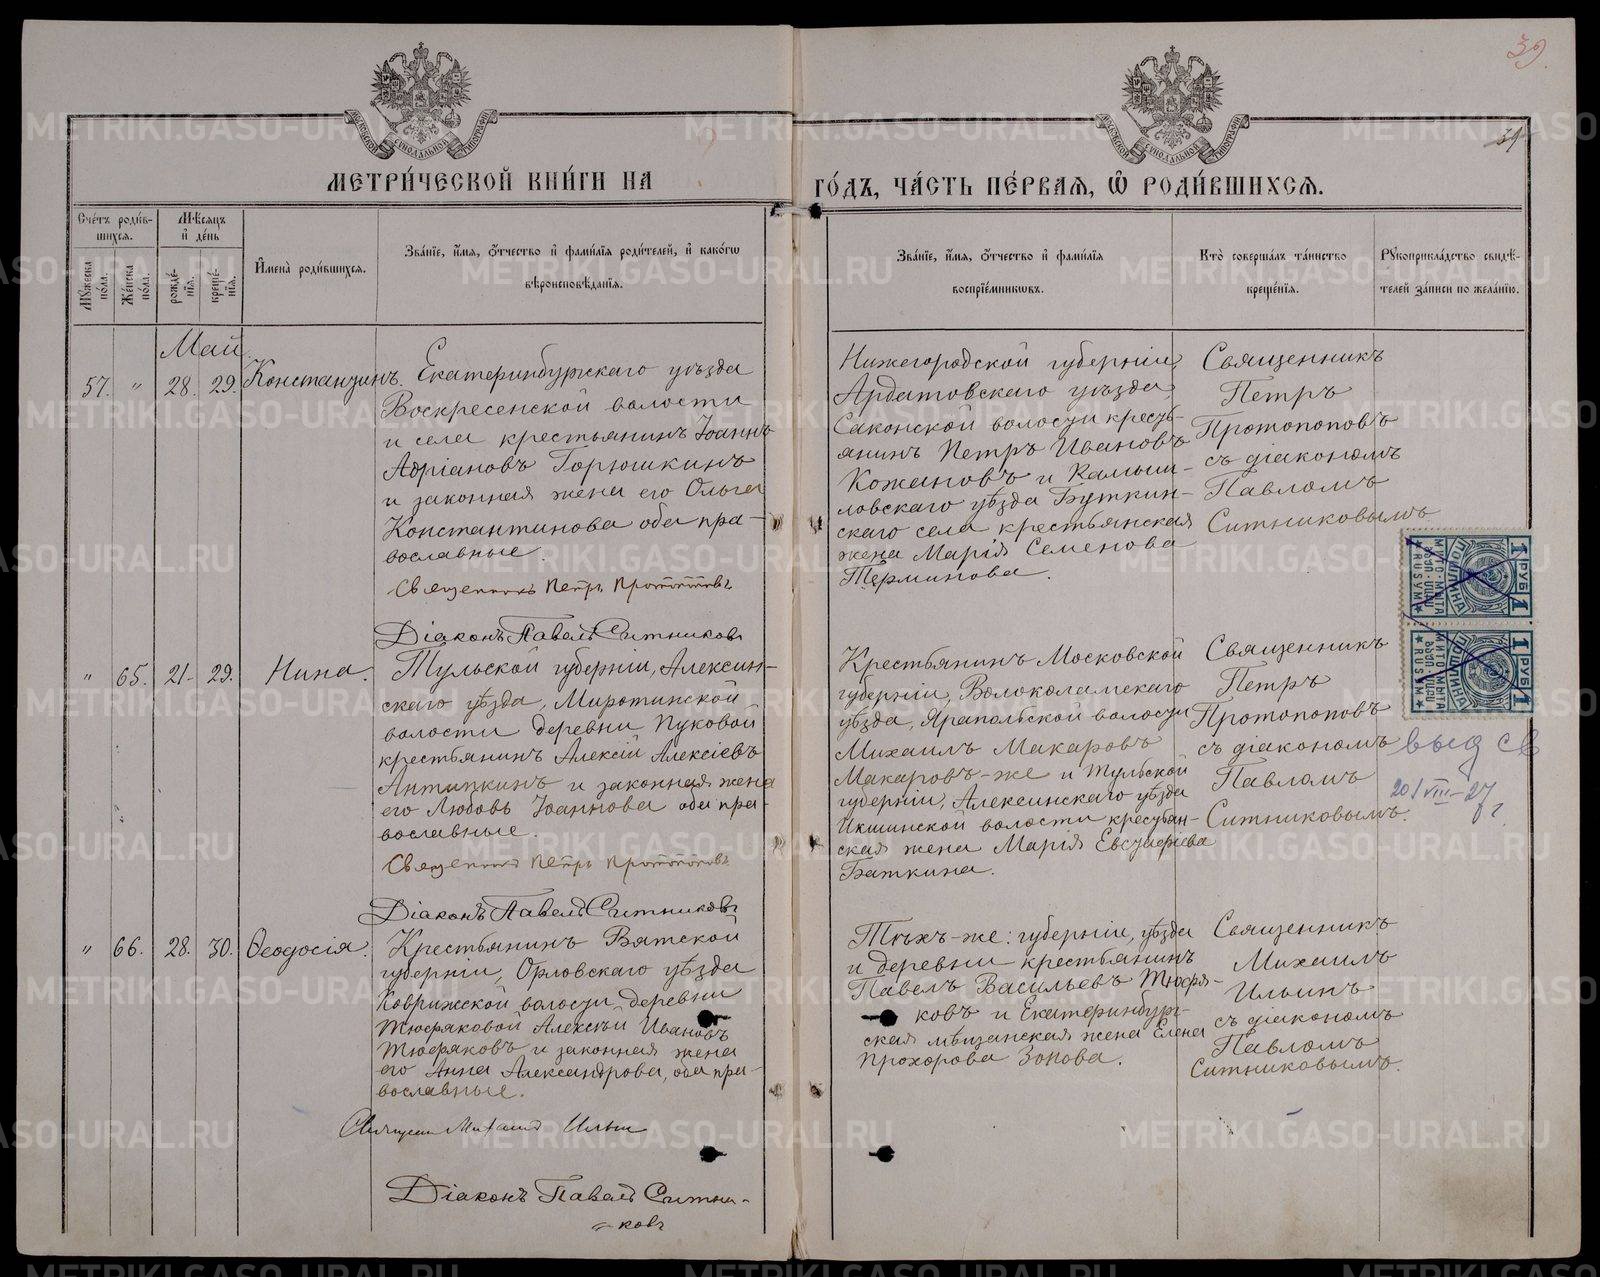 39.
39
МЕТРИ́ЧЕСКОЙ КНИ́ГИ НА
ГО́ДЪ, ЧА́СТЬ ПЕ́РВАЯ, Ѽ РОДИ́ВШИХСЯ.
Сче́тъ роди́в-
шихся.
Мѣ́сяцъ
и де́нь
Му́жеска по́ла.
Же́нска по́ла.
рожде́-
нїя.
креще́-
нїя.
Имена̀ роди́вшихся.
Зва́нїе, и́мя, ѻ́тчество и фами́лїя роди́телей, и како́гѡ
вѣроисповѣ́данїя.
Зва́нїе, и́мя, ѻ́тчество и фами́лїя
воспрїе́мникѡвъ.
Кто̀ соверша́лъ та́инство
креще́нїя.
Рукоприкла́дство свидѣ́-
телей за́писи по жела́нїю.
Май
57. " 28. 29. Константинъ.
Екатеринбургскаго уѣзда
Воскресенской волости
и села крестьянинъ Іоаннъ
Адріановъ Горюшкинъ
и законная жена его Ольга
Константинова оба пра-
вославные.
Священникъ Петръ Протопоповъ
Діаконъ Павелъ Ситниковъ
Нижегородской губерніи,
Ардатовскаго уѣзда,
Саконской волости кресть-
янинъ Петръ Ивановъ
Кожановъ и Камыш-
ловскаго уѣзда Буткин-
скаго села крестьянская
жена Марія Семенова
Терминова.
Священникъ
Петръ
Протопоповъ
съ діакономъ
Павломъ
Ситниковымъ
1 РУБ 1
ПОШЛИНА
1 РУБ 1
ПОШЛИНА
" 65. 21. 29. Нина.
Тульской губерніи, Алексин-
скаго уѣзда, Миротинской
волости деревни Пуковой
крестьянинъ Алексій Алексіевъ
Антипкинъ и законная жена
его Любовь Іоаннова оба пра-
вославные.
Священникъ Петръ Протопоповъ
Діаконъ Павелъ Ситниковъ
Крестьянинъ Московской
губерніи, Волоколамскаго
уѣзда, Яропольской волости
Михаилъ Макаровъ
Макаровъ-же и Тульской
губерніи, Алексинскаго уѣзда
Икшинской волости крестьян-
ская жена Марія Евстафіева
Баткина.
Священникъ
Петръ
Протопоповъ
съ діакономъ
Павломъ
Ситниковымъ.
выд св
20/VIII-27
г.
" 66. 28. 30. Ѳеодосія.
Крестьянинъ Вятской
губерніи, Орловскаго уѣзда
Коврижской волости деревни
Тюфяковой Алексѣй Ивановъ
Тюфяковъ и законная жена
его Анна Александрова, оба пра-
вославные.
Священникъ Михаилъ Ильинъ
Діаконъ Павелъ Ситни-
ковъ
Тѣхъ-же: губерніи, уѣзда
и деревни крестьянинъ
Павелъ Васильевъ Тюфя-
ковъ и Екатеринбург-
ская мѣщанская жена Елена
Прохорова Зопова.
Священникъ
Михаилъ
Ильинъ
съ діакономъ
Павломъ
Ситниковымъ.
METRIKI.GASO-URAL.RU